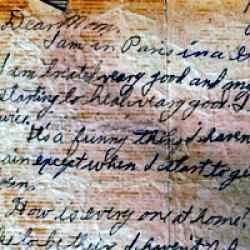 Dear Mom,
I am in Paris in a
I am treated very good and my
starting to heal very good
It's a funny thing I haven
pain except when I start to ge
How is every one at home
to be there I haven't